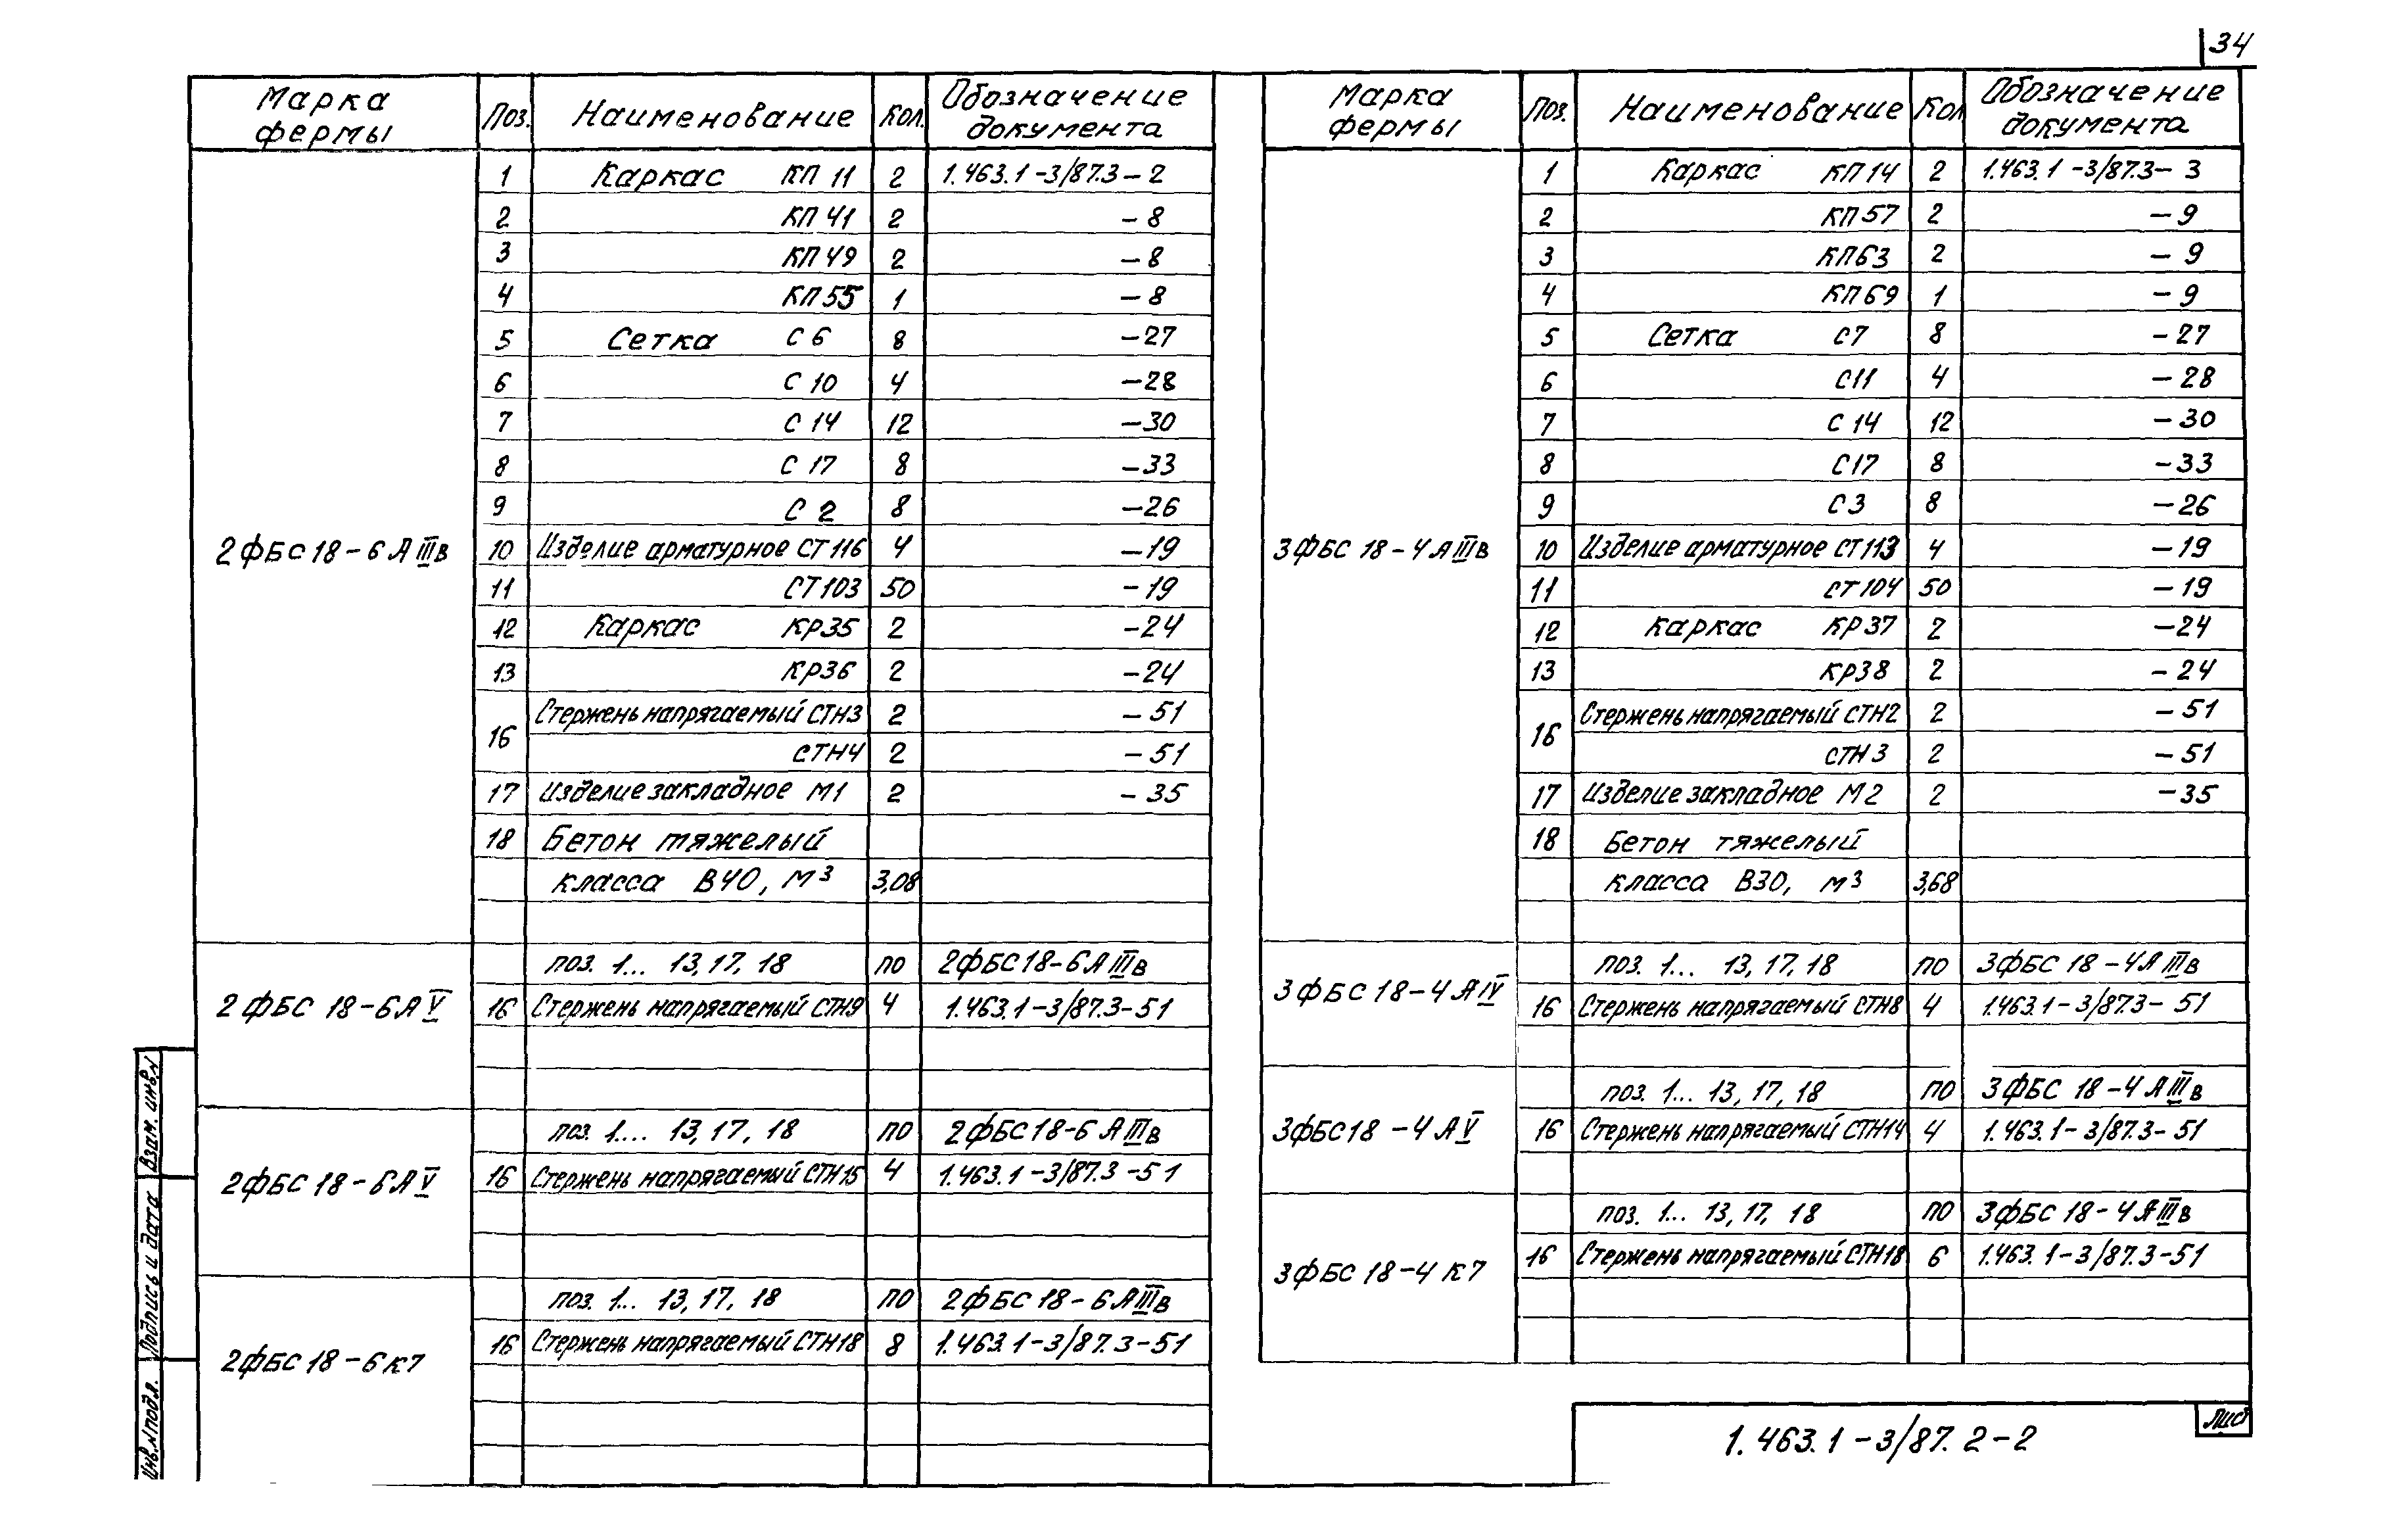 34
Марка фермы Поз. Наименование Кол. Обозначение документа
2ФБС18-6АIIIв
1 Каркас КП 11 2 1.463.1-3/87.3-2
2 КП 41 2 -8
3 КП 49 2 -8
4 КП 55 1 -8
5 Сетка С 6 8 -27
6 С 10 4 -28
7 С 14 12 -30
8 С 17 8 -33
9 С 2 8 -26
10 Изделие арматурное СТ 116 4 -19
11 СТ103 50 -19
12 Каркас КР35 2 -24
13 КР36 2 -24
16 Стержень напрягаемый СТН3 2 -51
СТН4 2 -51
17 Изделие закладное М1 2 -35
18 Бетон тяжелый
класса В40, м³ 3,08
2ФБС 18-6АV
поз. 1... 13, 17, 18 по 2ФБС18-6АIIIв
16 Стержень напрягаемый СТН9 4 1.463.1-3/87.3-51
2ФБС 18-6АV
поз. 1.... 13, 17, 18 по 2ФБС18-6 АIIIв
16 Стержень напрягаемый СТН15 4 1.463.1-3/87.3-51
2ФБС18-6К7
поз. 1... 13, 17, 18 по 2ФБС 18-6АIIIв
16 Стержень напрягаемый СТН18 8 1.463.1-3/87.3-51
Марка фермы Поз. Наименование Кол Обозначение документа
3ФБС 18-4АIIIв
1 Каркас КП14 2 1.463.1-3/87.3-3
2 КП57 2 -9
3 КП63 2 -9
4 КП69 1 -9
5 Сетка С7 8 -27
6 С11 4 -28
7 С 14 12 -30
8 С17 8 -33
9 С3 8 -26
10 Изделие арматурное СТ113 4 -19
11 СТ104 50 -19
12 Каркас КР37 2 -24
13 КР38 2 -24
16 Стержень напрягаемый СТН2 2 -51
СТН3 2 -51
17 Изделие закладное М2 2 -35
18 Бетон тяжелый
класса В30, м³ 3,68
3ФБС 18-4АIV
поз. 1... 13, 17, 18 по 3ФБС 18-4АIIIв
16 Стержень напрягаемый СТН8 4 1.463.1-3/87.3-51
3ФБС18-4АV
поз. 1... 13, 17, 18 по 3ФБС 18-4АIIIв
16 Стержень напрягаемый СТН14 4 1.463.1-3/87.3-51
3ФБС 18-4К7
поз. 1... 13, 17, 18 по 3ФБС 18-4АIIIв
16 Стержень напрягаемый СТН18 6 1.463.1-3/87.3-51
Взам. инв.N
Подпись и дата
Инв.N подл.
1.463.1-3/87.2-2
Лист